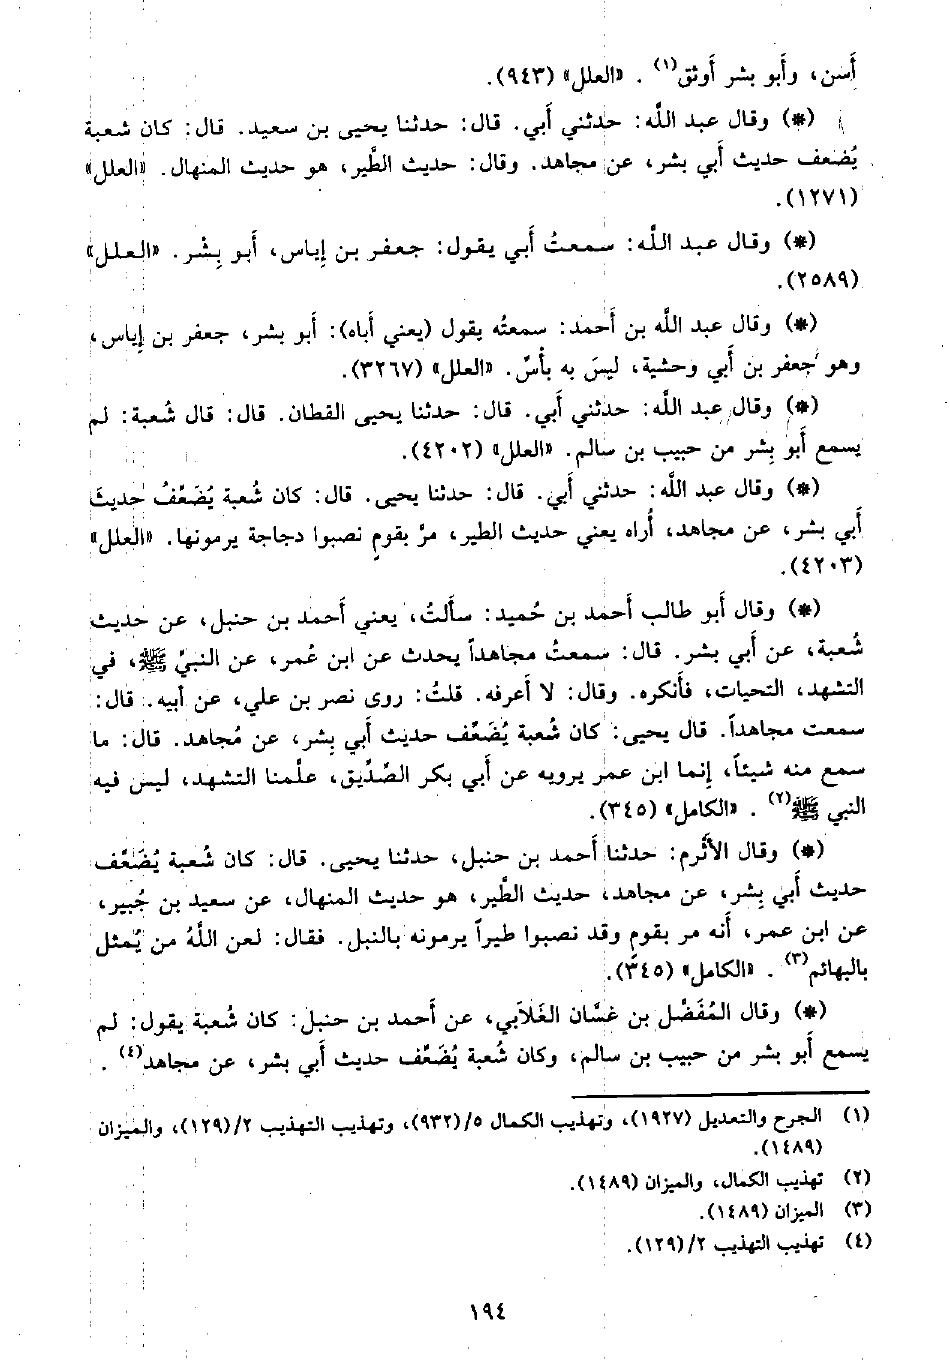 أَسن، وأَبو بشر أَوثق(١) . «العلل» (٩٤٣).
(*) وقال عبد اللَّه: حدثني أَبي. قال: حدثنا يحيى بن سعيد. قال: كان شعبة
يُضعف حديث أَبي بشر، عن مجاهد. وقال: حديث الطَّير، هو حديث المنهال. «العلل»
(١٢٧١).
(*) وقال عبد اللَّه: سمعتُ أَبي يقول: جعفر بن إِياس، أَبو بِشْر. «العلل»
(٢٥٨٩).
(*) وقال عبد اللَّه بن أَحمد: سمعتُه يقول (يعني أَباه): أَبو بشر، جعفر بن إِياس،
وهو جعفر بن أَبي وحشية، ليسَ به بأْسٌ. «العلل» (٣٢٦٧).
(*) وقال عبد اللَّه: حدثني أَبي. قال: حدثنا يحيى القطان. قال: قال شُعبة: لم
يسمع أَبو بِشْر من حبيب بن سالم. «العلل» (٤٢٠٢).
(*) وقال عبد اللَّه: حدثني أَبي. قال: حدثنا يحيى. قال: كان شُعبة يُضَعِّفُ حديثَ
أَبي بشر، عن مجاهد، أُراه يعني حديث الطير، مرَّ بقومٍ نصبوا دجاجة يرمونها. «العلل»
(٤٢٠٣).
(*) وقال أَبو طالب أَحمد بن حُميد: سأَلتُ، يعني أَحمد بن حنبل، عن حديث
شُعبة، عن أَبي بشر. قال: سمعتُ مجاهداً يحدث عن ابن عُمر، عن النبيِّ ﷺ، في
التشهد، التحيات، فأَنكره. وقال: لا أَعرفه. قلتُ: روى نصر بن علي، عن أبيه. قال:
سمعت مجاهداً. قال يحيى: كان شُعبة يُضَعِّف حديث أَبي بِشر، عن مُجاهد. قال: ما
سمع منه شيئاً، إِنما ابن عمر يرويه عن أَبي بكر الصِّدِّيق، علَّمنا التشهد، ليس فيه
النبي ﷺ(٢) . «الكامل» (٣٤٥).
(*) وقال الأَثْرم: حدثنا أَحمد بن حنبل، حدثنا يحيى. قال: كان شُعبة يُضَعِّف
حديث أَبي بِشر، عن مجاهد، حديث الطَّير، هو حديث المنهال، عن سعيد بن جُبير،
عن ابن عمر، أَنه مر بقومٍ وقد نصبوا طيراً يرمونه بالنبل. فقال: لعن اللَّهُ من يُمثل
بالبهائم(٣) . «الكامل» (٣٤٥).
(*) وقال المُفَضَّل بن غسَّان الغَلاَبي، عن أَحمد بن حنبل: كان شُعبة يقول: لم
يسمع أَبو بشر من حبيب بن سالم، وكان شُعبة يُضَعِّف حديث أَبي بشر، عن مجاهد(٤) .
(١) الجرح والتعديل (١٩٢٧)، وتهذيب الكمال ٥/(٩٣٢)، وتهذيب التهذيب ٢/(١٢٩)، والميزان
(١٤٨٩).
(٢) تهذيب الكمال، والميزان (١٤٨٩).
(٣) الميزان (١٤٨٩).
(٤) تهذيب التهذيب ٢/(١٢٩).
١٩٤